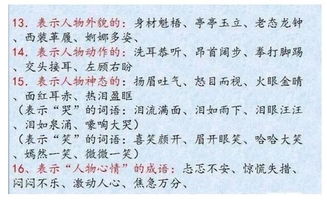 13、表示人物外貌的：身材魁梧、亭亭玉立、老态龙钟
、西装革履、婀娜多姿、
14、表示人物动作的：洗耳恭听、昂首阔步、拳打脚踢
、交头接耳、左顾右盼
15、表示人物神态的：扬眉吐气、怒目而视、火眼金睛
、面红耳赤、热泪盈眶
（表示“哭”的词语：泪流满面、泪如雨下、泪眼汪汪
、泪如泉涌、嚎啕大哭）
（表示“笑”的词语：喜笑颜开、眉开眼笑、哈哈大笑
、嫣然一笑、微微一笑）
16、表示“人物心情”的成语：忐忑不安、惊慌失措、
闷闷不乐、激动人心、焦急万分、